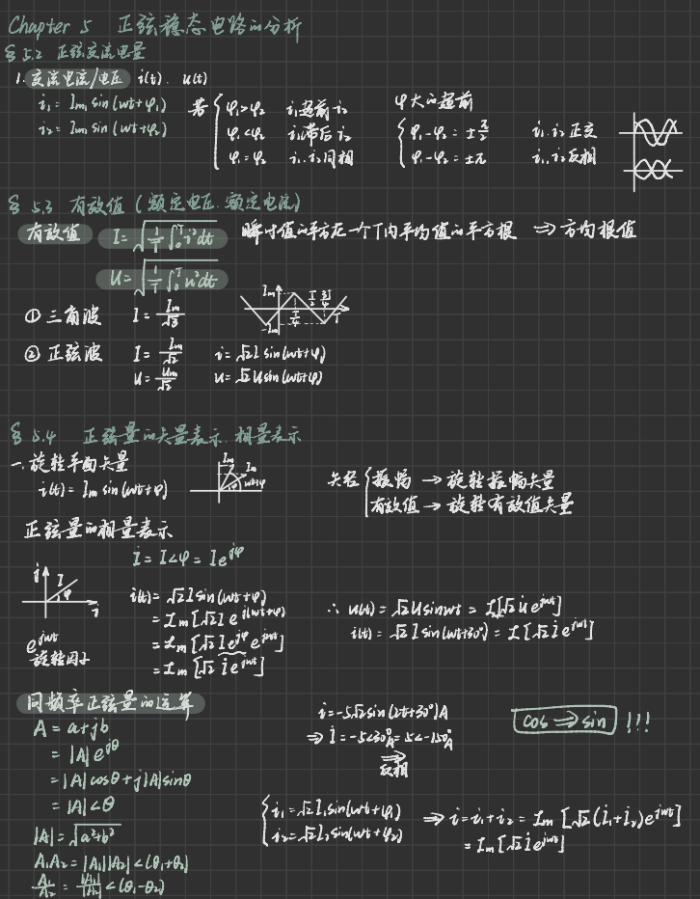 Chapter 5 正弦稳态电路的分析
§5.2 正弦交流电量
1. 交流电流/电压 i(t). u(t)
i₁ = Im₁ sin(wt+φ₁)
i₂ = Im sin(wt+φ₂)
若 { φ₁>φ₂ i₁超前i₂
φ₁<φ₂ i₁滞后i₂
φ₁=φ₂ i₁.i₂同相
φ大的超前
{ φ₁-φ₂ = ±π/2 i₁.i₂正交
φ₁-φ₂ = ±π i₁.i₂反相
§5.3 有效值 (额定电压.额定电流)
有效值 I = √(1/T ∫₀ᵀ i²dt) 瞬时值的平方在一个T内平均值的平方根 ⇒ 方均根值
U = √(1/T ∫₀ᵀ u²dt)
① 三角波 I = Im/√3
Im T/4 T/2 3T/4 T -Im
② 正弦波 I = Im/√2 i = √2 I sin(wt+φ)
U = Um/√2 u = √2 U sin(wt+φ)
§5.4 正弦量的矢量表示.相量表示
一. 旋转平面矢量
i(t) = Im sin(wt+φ)
Im Im wt+φ
矢径 { 振幅 → 旋转振幅矢量
有效值 → 旋转有效值矢量
正弦量的相量表示
İ = I∠φ = Ie^jφ
j I φ 1
e^jwt
旋转因子
i(t) = √2 I sin(wt+φ)
= Im[√2 I e^j(wt+φ)]
= Im[√2 Ie^jφ e^jwt]
= Im[√2 İ e^jwt]
∴ u(t) = √2 U sinwt = I[√2 u̇ e^jwt]
i(t) = √2 I sin(wt+30°) = I[√2 İ e^jwt]
同频率正弦量的运算
A = a+jb
= |A|e^jθ
= |A|cosθ+j|A|sinθ
= |A|∠θ
|A| = √(a²+b²)
A₁A₂ = |A₁||A₂|∠(θ₁+θ₂)
A₁/A₂ = |A₁|/|A₂|∠(θ₁-θ₂)
i = -5√2 sin(2t+30°)A
⇒ İ = -5∠30°A = 5∠-150°A
⇒ 反相
cos ⇒ sin !!!
{ i₁ = √2 I₁ sin(wt+φ₁)
i₂ = √2 I₂ sin(wt+φ₂)
⇒ i = i₁+i₂ = Im[√2(İ₁+İ₂)e^jwt]
= Im[√2 İ e^jwt]